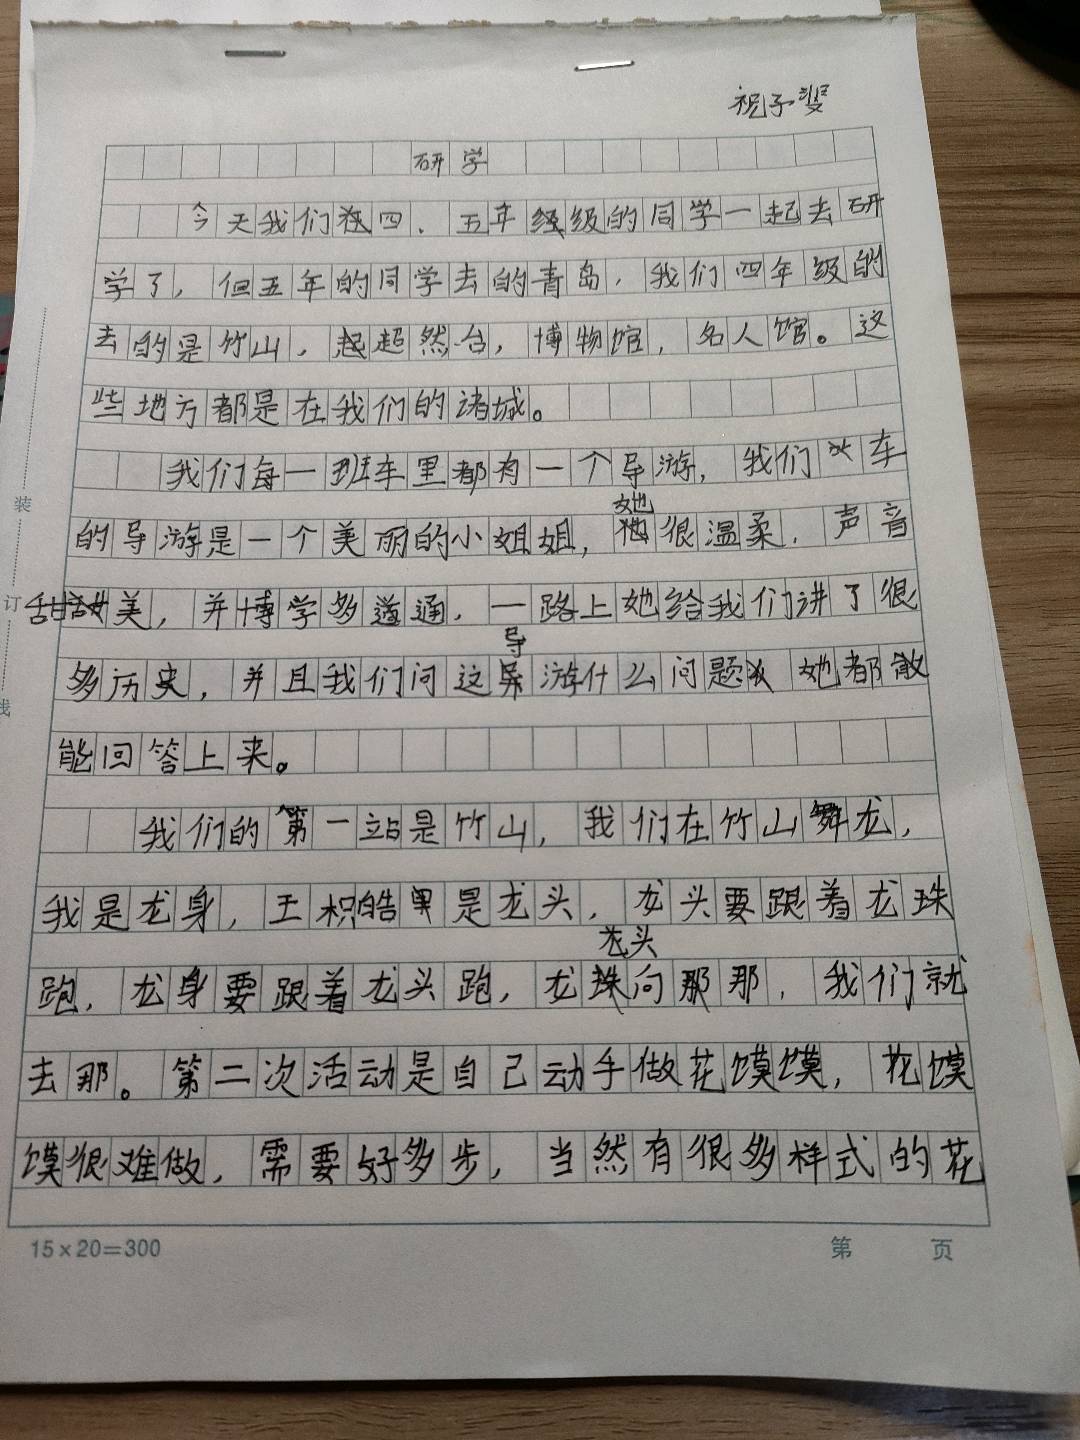 祝子翌
研学
今天我们在四、五年级的同学一起去研
学了，但五年的同学去的青岛，我们四年级的
去的是竹山，超然台，博物馆，名人馆。这
些地方都是在我们的诸城。
我们每一班车里都有一个导游，我们车
的导游是一个美丽的小姐姐，她很温柔，声音
甜美，并博学多通，一路上她给我们讲了很
多历史，并且我们问这导游什么问题 她都敢
能回答上来。
我们的第一站是竹山，我们在竹山舞龙，
我是龙身，王积皓 是龙头，龙头要跟着龙珠
跑，龙身要跟着龙头跑，龙头向那，我们就
去那。第二次活动是自己动手做花馍馍，花馍
馍很难做，需要好多步，当然有很多样式的花
装
订
线
15×20=300
第 页